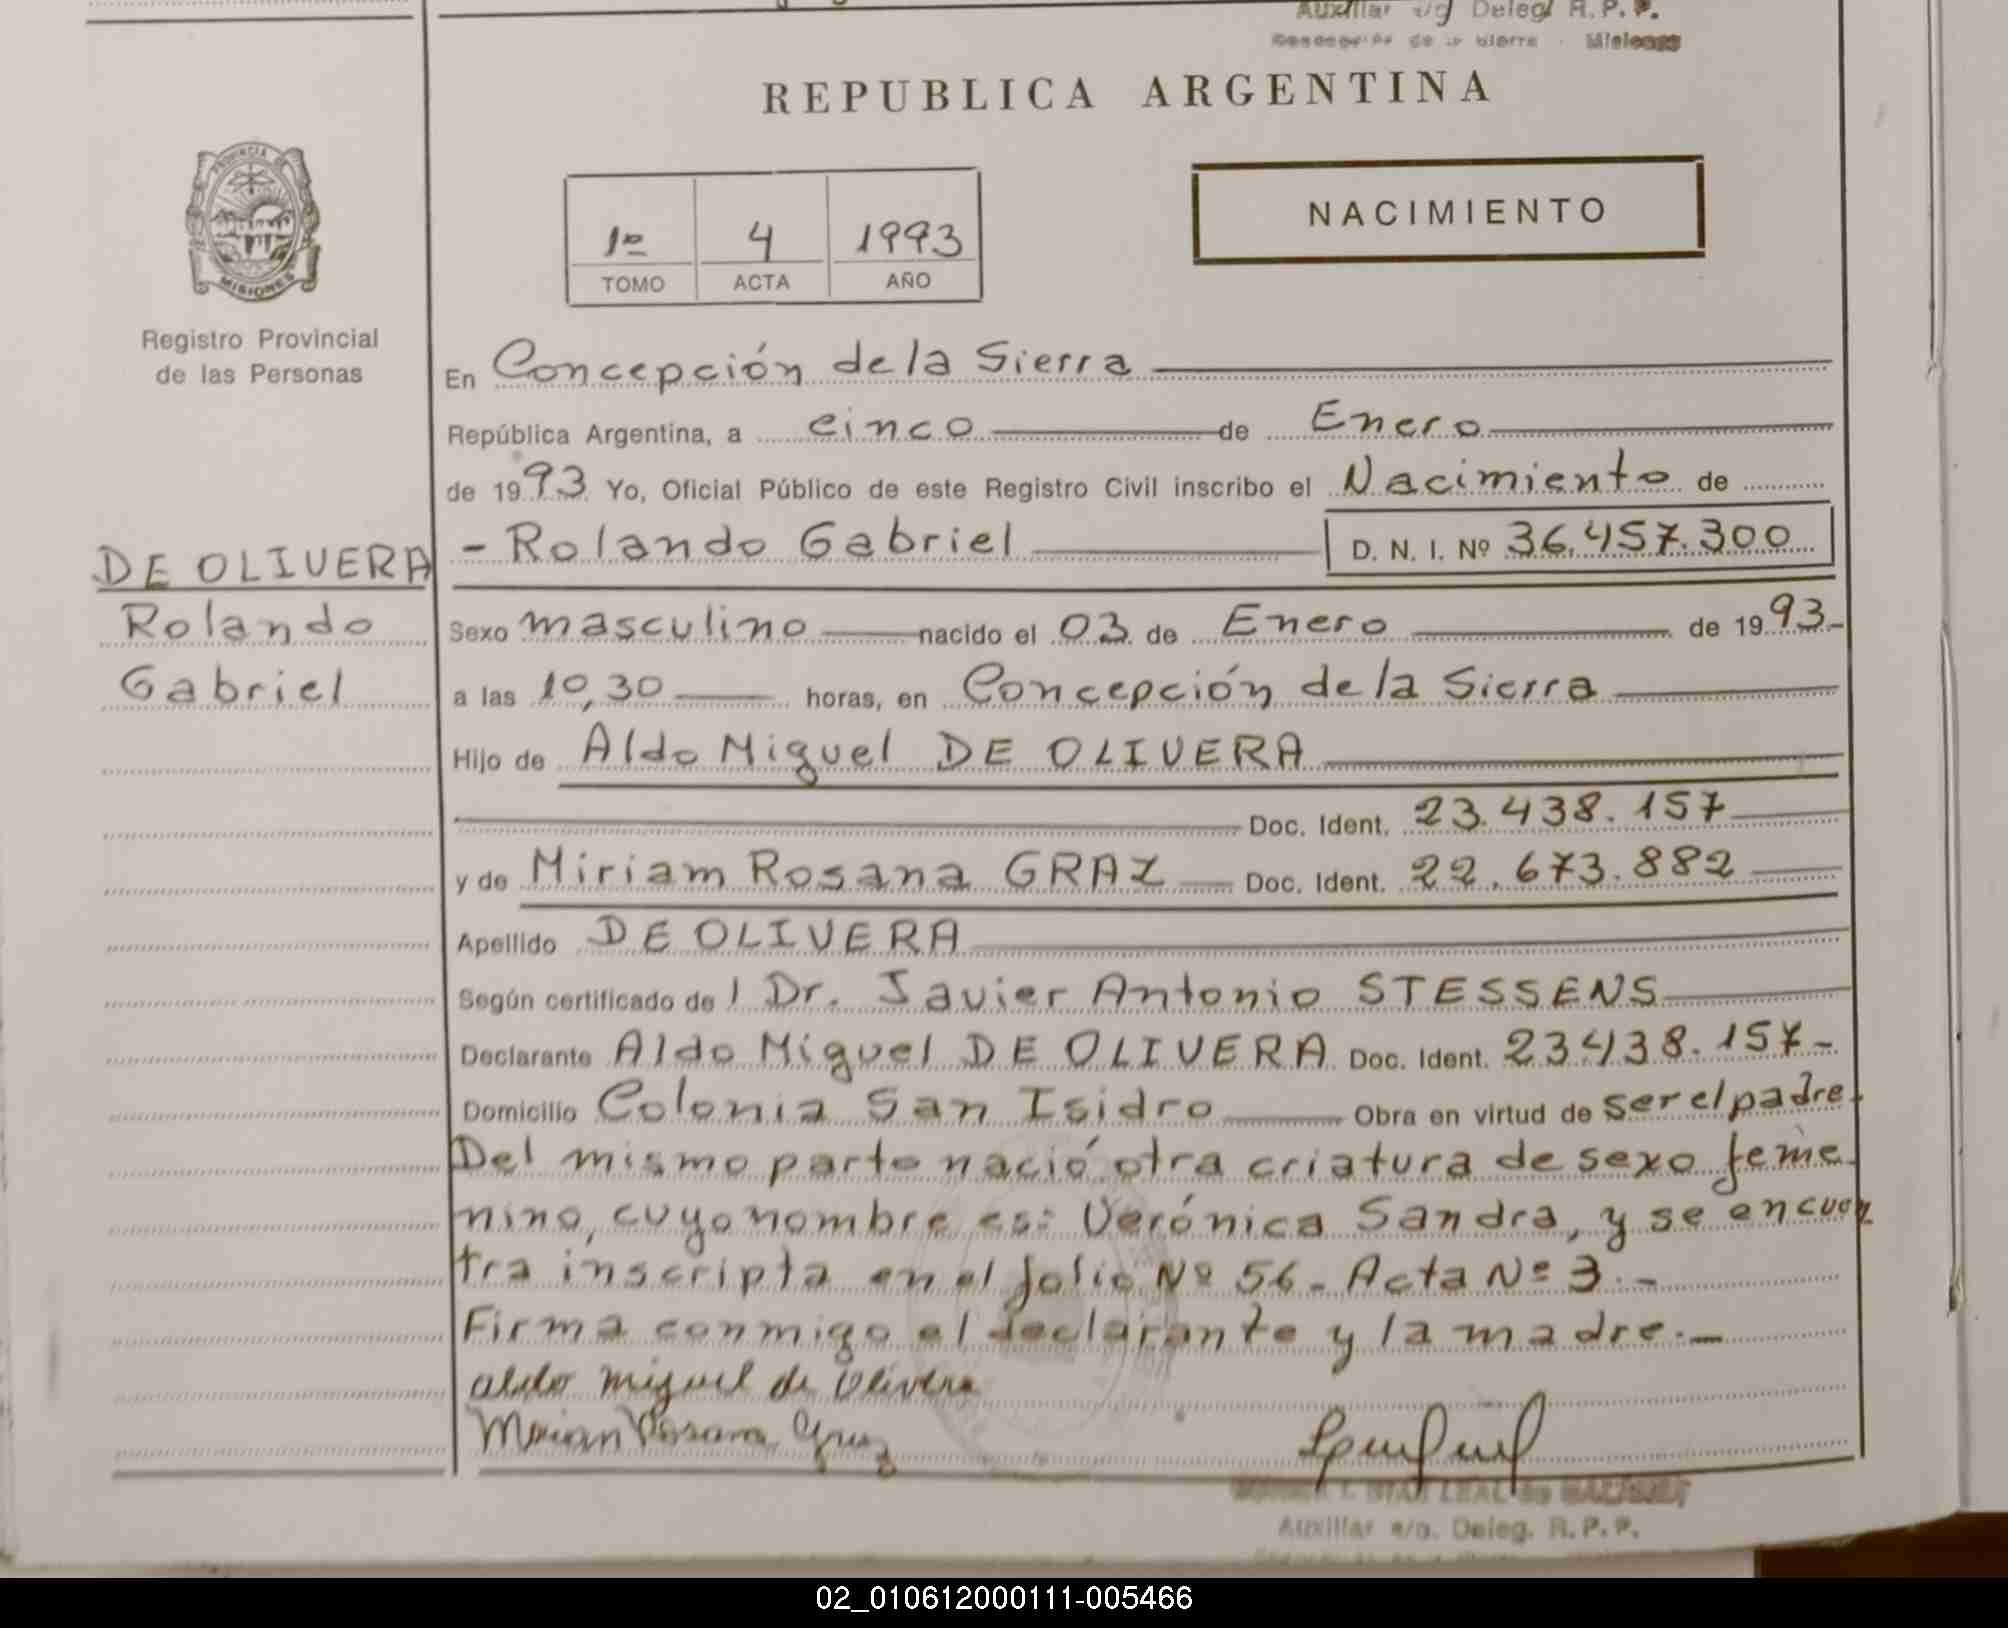 Auxiliar Deleg R. P. P.
de Sierra - Misiones
REPUBLICA ARGENTINA
PROVINCIA DE
MISIONES
NACIMIENTO
1º 4 1993
TOMO ACTA AÑO
Registro Provincial
de las Personas
En Concepción de la Sierra
República Argentina, a cinco de Enero
de 1993 Yo, Oficial Público de este Registro Civil inscribo el Nacimiento de
- Rolando Gabriel D. N. I. Nº 36.457.300
DE OLIVERA
Rolando
Gabriel
Sexo masculino nacido el 03 de Enero de 1993-
a las 10,30 horas, en Concepción de la Sierra
Hijo de Aldo Miguel DE OLIVERA
Doc. Ident. 23.438.157
y de Miriam Rosana GRAZ Doc. Ident. 22.673.882
Apellido DE OLIVERA
Según certificado de l Dr. Javier Antonio STESSENS
Declarante Aldo Miguel DE OLIVERA Doc. Ident. 23.438.157-
Domicilio Colonia San Isidro Obra en virtud de ser el padre.
Del mismo parto nació otra criatura de sexo feme-
nino, cuyo nombre es: Verónica Sandra, y se encuen
tra inscripta en el folio Nº 56- Acta Nº 3.-
Firma conmigo el declarante y la madre.-
aldo miguel de Olivera
Rosana Graz
LEAL de
Auxiliar a/c. Deleg. R. P. P.
02_010612000111-005466